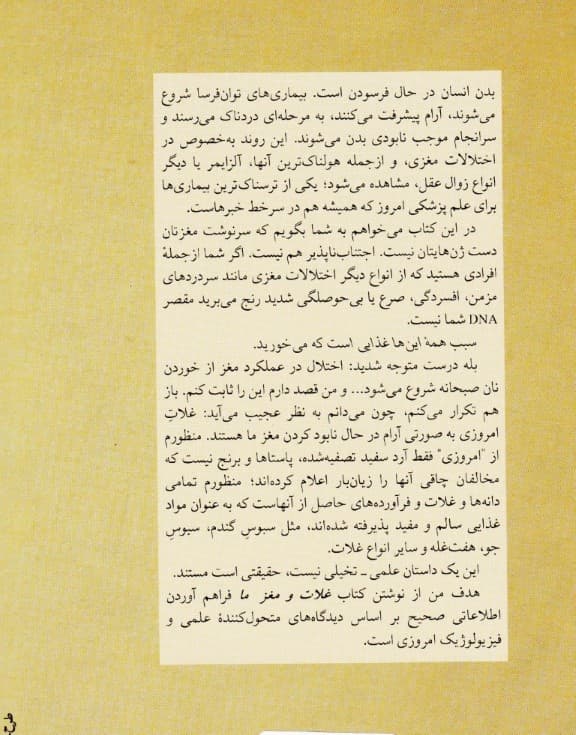 بدن انسان در حال فرسودن است. بیماری‌های توان‌فرسا شروع
می‌شوند، آرام پیشرفت می‌کنند، به مرحله‌ای دردناک می‌رسند و
سرانجام موجب نابودی بدن می‌شوند. این روند به‌خصوص در
اختلالات مغزی، و ازجمله هولناک‌ترین آنها، آلزایمر یا دیگر
انواع زوال عقل، مشاهده می‌شود؛ یکی از ترسناک‌ترین بیماری‌ها
برای علم پزشکی امروز که همیشه هم در سرخط خبرهاست.
در این کتاب می‌خواهم به شما بگویم که سرنوشت مغزتان
دست ژن‌هایتان نیست. اجتناب‌ناپذیر هم نیست. اگر شما ازجملهٔ
افرادی هستید که از انواع دیگر اختلالات مغزی مانند سردردهای
مزمن، افسردگی، صرع یا بی‌حوصلگی شدید رنج می‌برید مقصر
DNA شما نیست.
سبب همهٔ این‌ها غذایی است که می‌خورید.
بله درست متوجه شدید: اختلال در عملکرد مغز از خوردن
نان صبحانه شروع می‌شود... و من قصد دارم این را ثابت کنم. باز
هم تکرار می‌کنم، چون می‌دانم به نظر عجیب می‌آید: غلاتِ
امروزی به صورتی آرام در حال نابود کردن مغز ما هستند. منظورم
از "امروزی" فقط آرد سفید تصفیه‌شده، پاستاها و برنج نیست که
مخالفان چاقی آنها را زیان‌بار اعلام کرده‌اند؛ منظورم تمامی
دانه‌ها و غلات و فرآورده‌های حاصل از آنهاست که به عنوان مواد
غذایی سالم و مفید پذیرفته شده‌اند، مثل سبوسِ گندم، سبوسِ
جو، هفت‌غله و سایر انواع غلات.
این یک داستان علمی ـ تخیلی نیست، حقیقتی است مستند.
هدف من از نوشتن کتاب غلات و مغز ما فراهم آوردن
اطلاعاتی صحیح بر اساس دیدگاه‌های متحول‌کنندهٔ علمی و
فیزیولوژیک امروزی است.
طرح